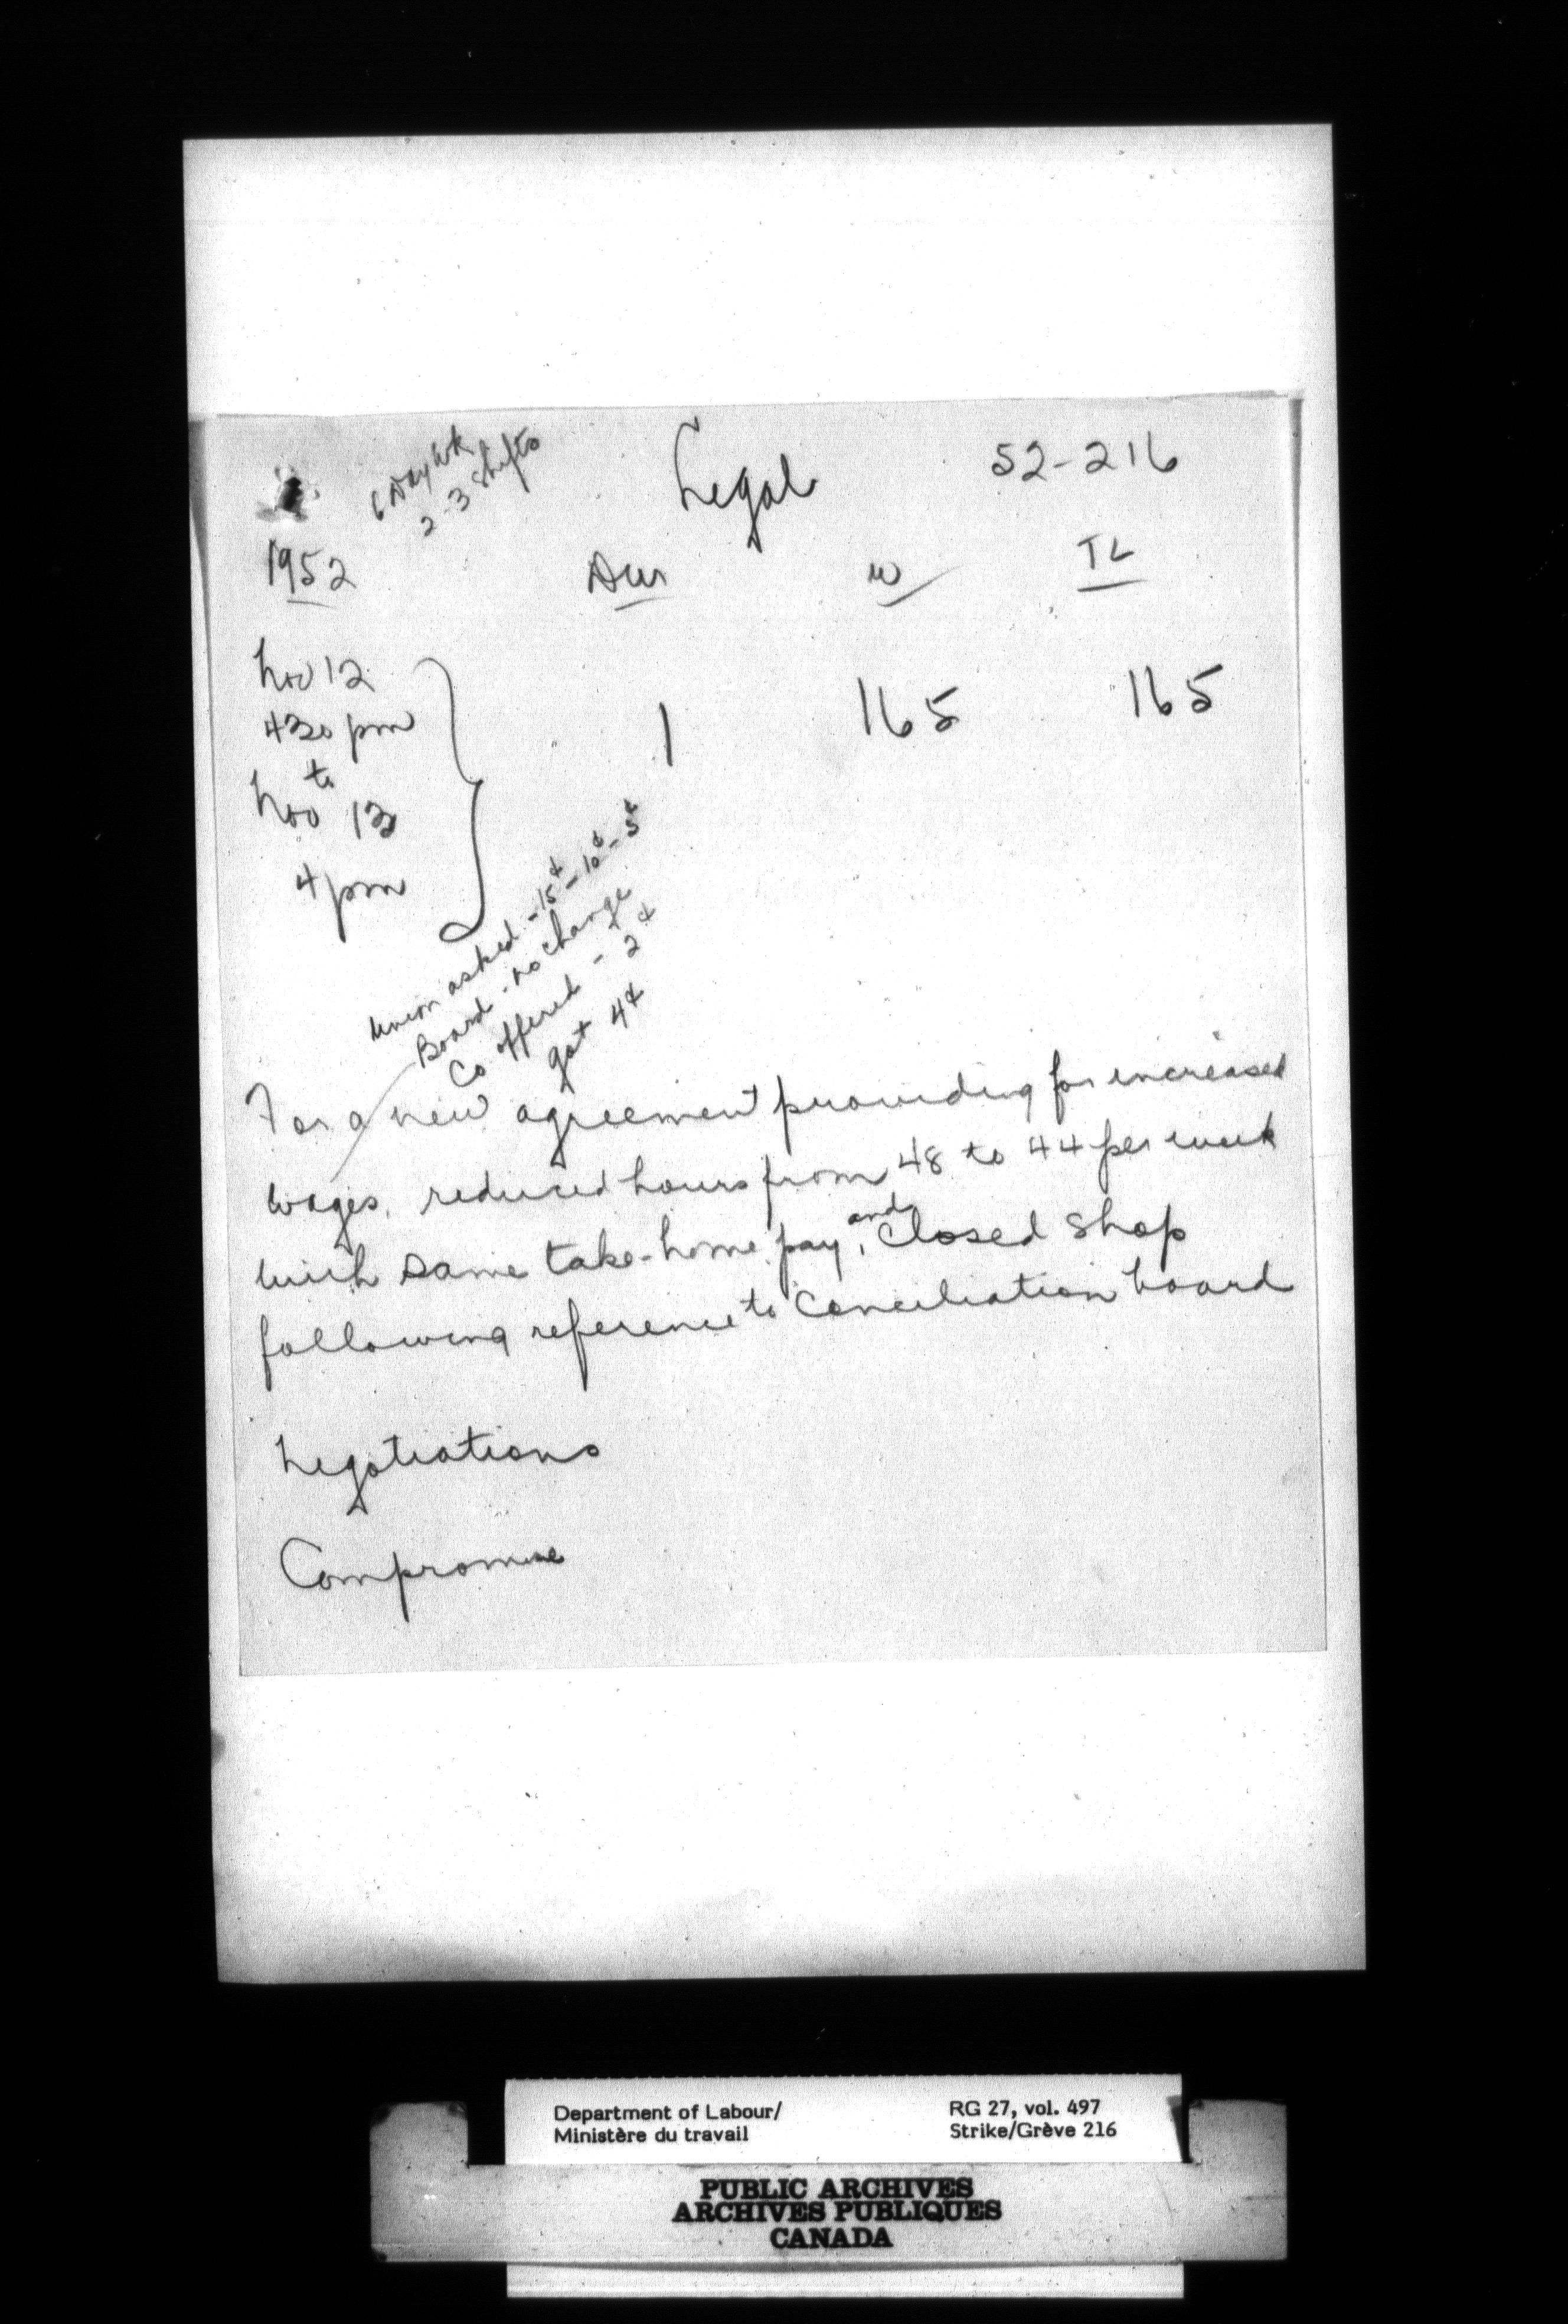 6 Day Wk
2-3 shifts
Legal
52-216
1952
Dur
W
TL
Nov 12
430 pm
to
Nov 13
4 pm
1
165
165
Union asked - 15¢ - 10¢ - 5¢
Board - no change
Co offered - 2¢
got 4¢
For a new agreement providing for increased
wages, reduced hours from 48 to 44 per week
with same take-home pay, and closed shop
following reference to conciliation board
Negotiations
Compromise
Department of Labour/
Ministère du travail
RG 27, vol. 497
Strike/Grève 216
PUBLIC ARCHIVES
ARCHIVES PUBLIQUES
CANADA